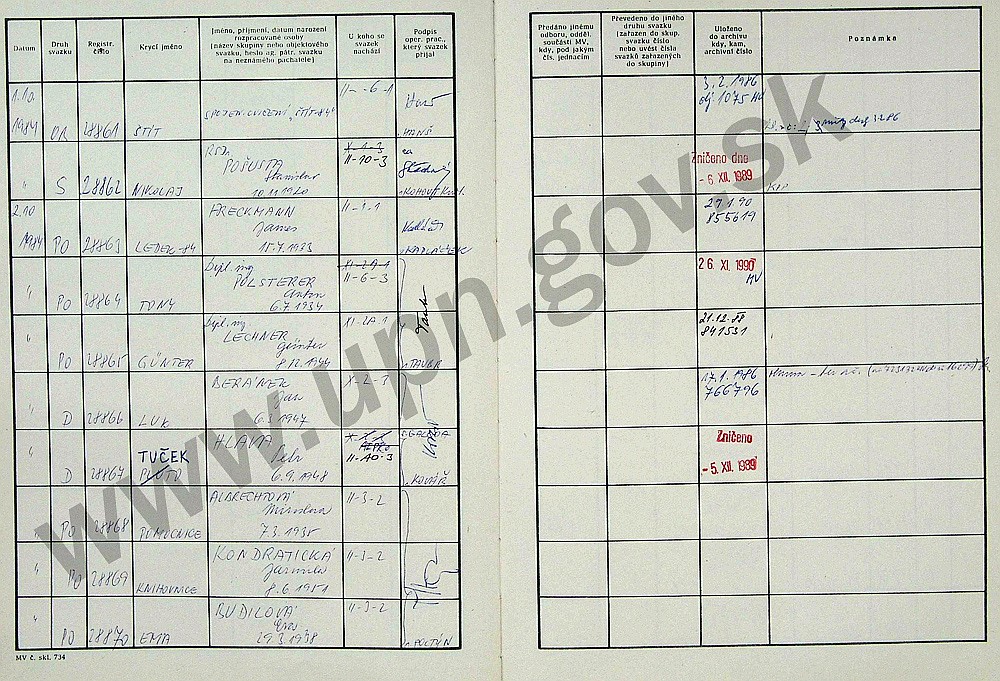 Datum
Druh svazku
Registr. číslo
Krycí jméno
Jméno, příjmení, datum narození
rozpracované osoby
(název skupiny nebo objektového
svazku, heslo ag. pátr. svazku
na neznámého pachatele)
U koho se
svazek
nachází
Podpis
oper. prac.,
který svazek
přijal
Předáno jinému
odboru, odděl.
součásti MV,
kdy, pod jakým
čís. jednacím
Převedeno do jiného
druhu svazku
(zařazen do skup.
svazku číslo
nebo uvést čísla
svazků zařazených
do skupiny)
Uloženo
do archivu
kdy, kam,
archivní číslo
Poznámka
1.10.
1984 OR 28861 ŠTÍT "ŠTÍT-84" II-6-1 HANŠ
3.2.1986
obj 1075 MV
" S 28862 NIKOLAJ RSDr. POŠUSTA Stanislav 10.11.1940 X-1-3 II-10-3
Zničeno dne
- 6. XII. 1989
2.10
1984 PO 28863 LEDEK-84 FRECKMANN James 15.7.1933 II-1-1 KADLEČEK
29.1.90
855619
" PO 28864 TONY Dipl. ing. PÖLSTERER Anton 6.7.1934 XI-2A-1 II-6-3
26. XI. 1990
MV
" PO 28865 GÜNTER Dipl. ing. LECHNER Günter 8.12.1944 XI-2A-1 TAUBR
21.12.88
841531
" D 28866 LUK BERÁNEK Jan 6.3.1947 X-2-3
17.1.1986
766796
" D 28867 TUČEK PLUTO HLAVA Petr 6.9.1948 II-10-3 KOVÁŘ
Zničeno
- 5. XII. 1989
" PO 28868 POMOCNICE ALBRECHTOVÁ Miroslava 7.3.1935 II-3-2
" PO 28869 KNIHOVNICE KONDRATICKÁ Jarmila 8.6.1951 II-3-2
" PO 28870 EMA BUDILOVÁ Eva 29.3.1938 II-3-2
MV č. skl. 734
www.upn.gov.sk